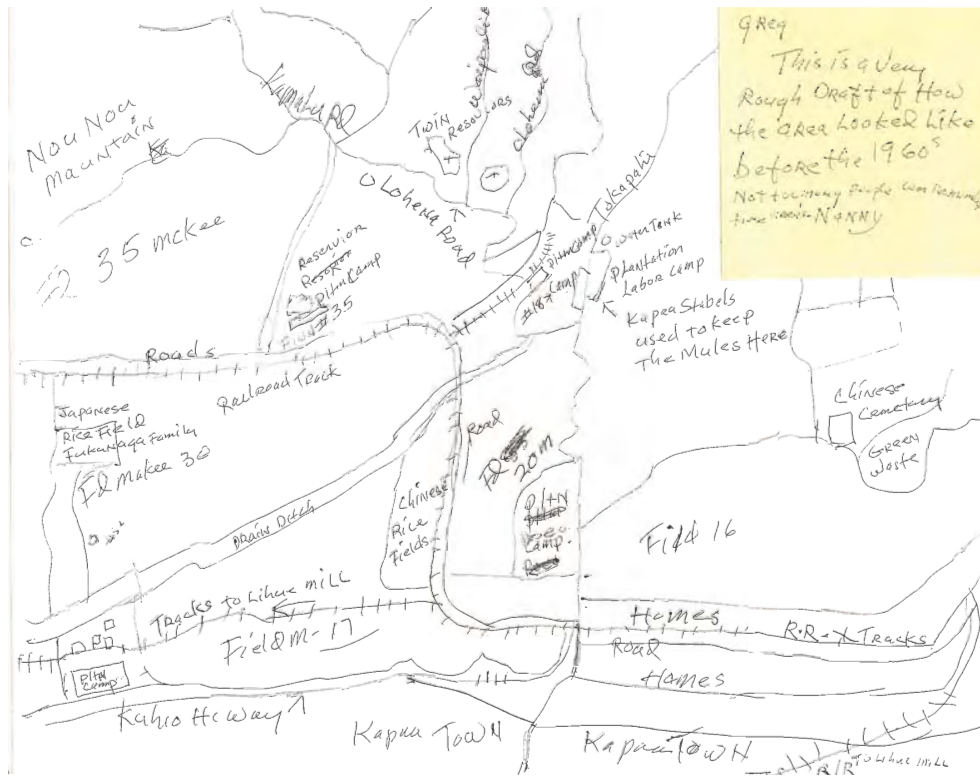 GReg
This is a Very
Rough Draft of How
the area Looked Like
before the 1960s
Not too many people
NANNY
Nou Nou
Mountain
Kamalu RD
Twin
Resvors
Olohena RD
Olohena Road
To Kapahi
35 mckee
Reservior
PLtn Camp
#35
Pltn Camp
#18
Camp
Water Tank
Plantation
Labor Camp
Kapaa Stabels
used to keep
The Mules Here
Roads
Railroad Track
Japanese
Rice Field
Fukunaga Family
Fd Makee 30
Drain Ditch
Chinese
Rice
Fields
Road
Fd
20 m
PLtN
Camp
Chinese
Cemetary
Green
Waste
Field 16
Tracks to Lihue mill
Field M-17
Pltn
Camp
Homes
R.R-X Tracks
Road
Homes
Kuhio Hcway
Kapaa Town
Kapaa Town
R/R To Lihue mill